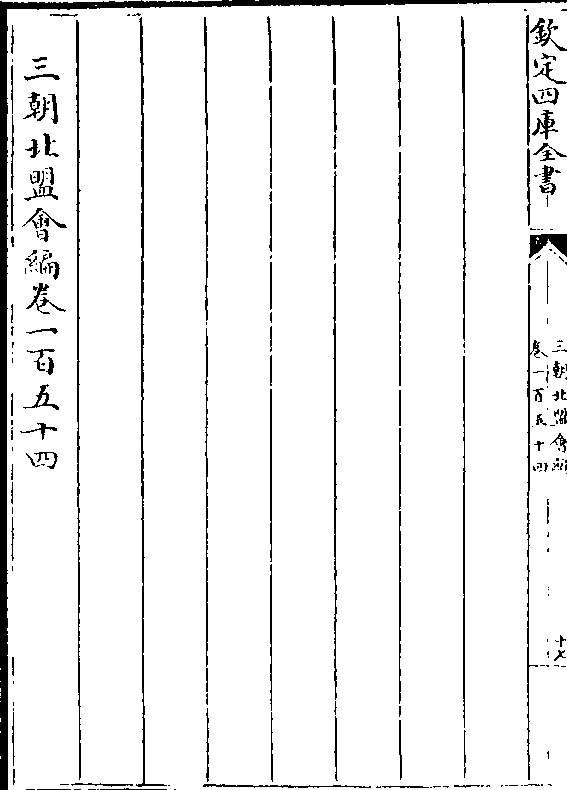 欽定四庫全書
三朝北盟會編
卷一百五十四
十七
三朝北盟會編卷一百五十四